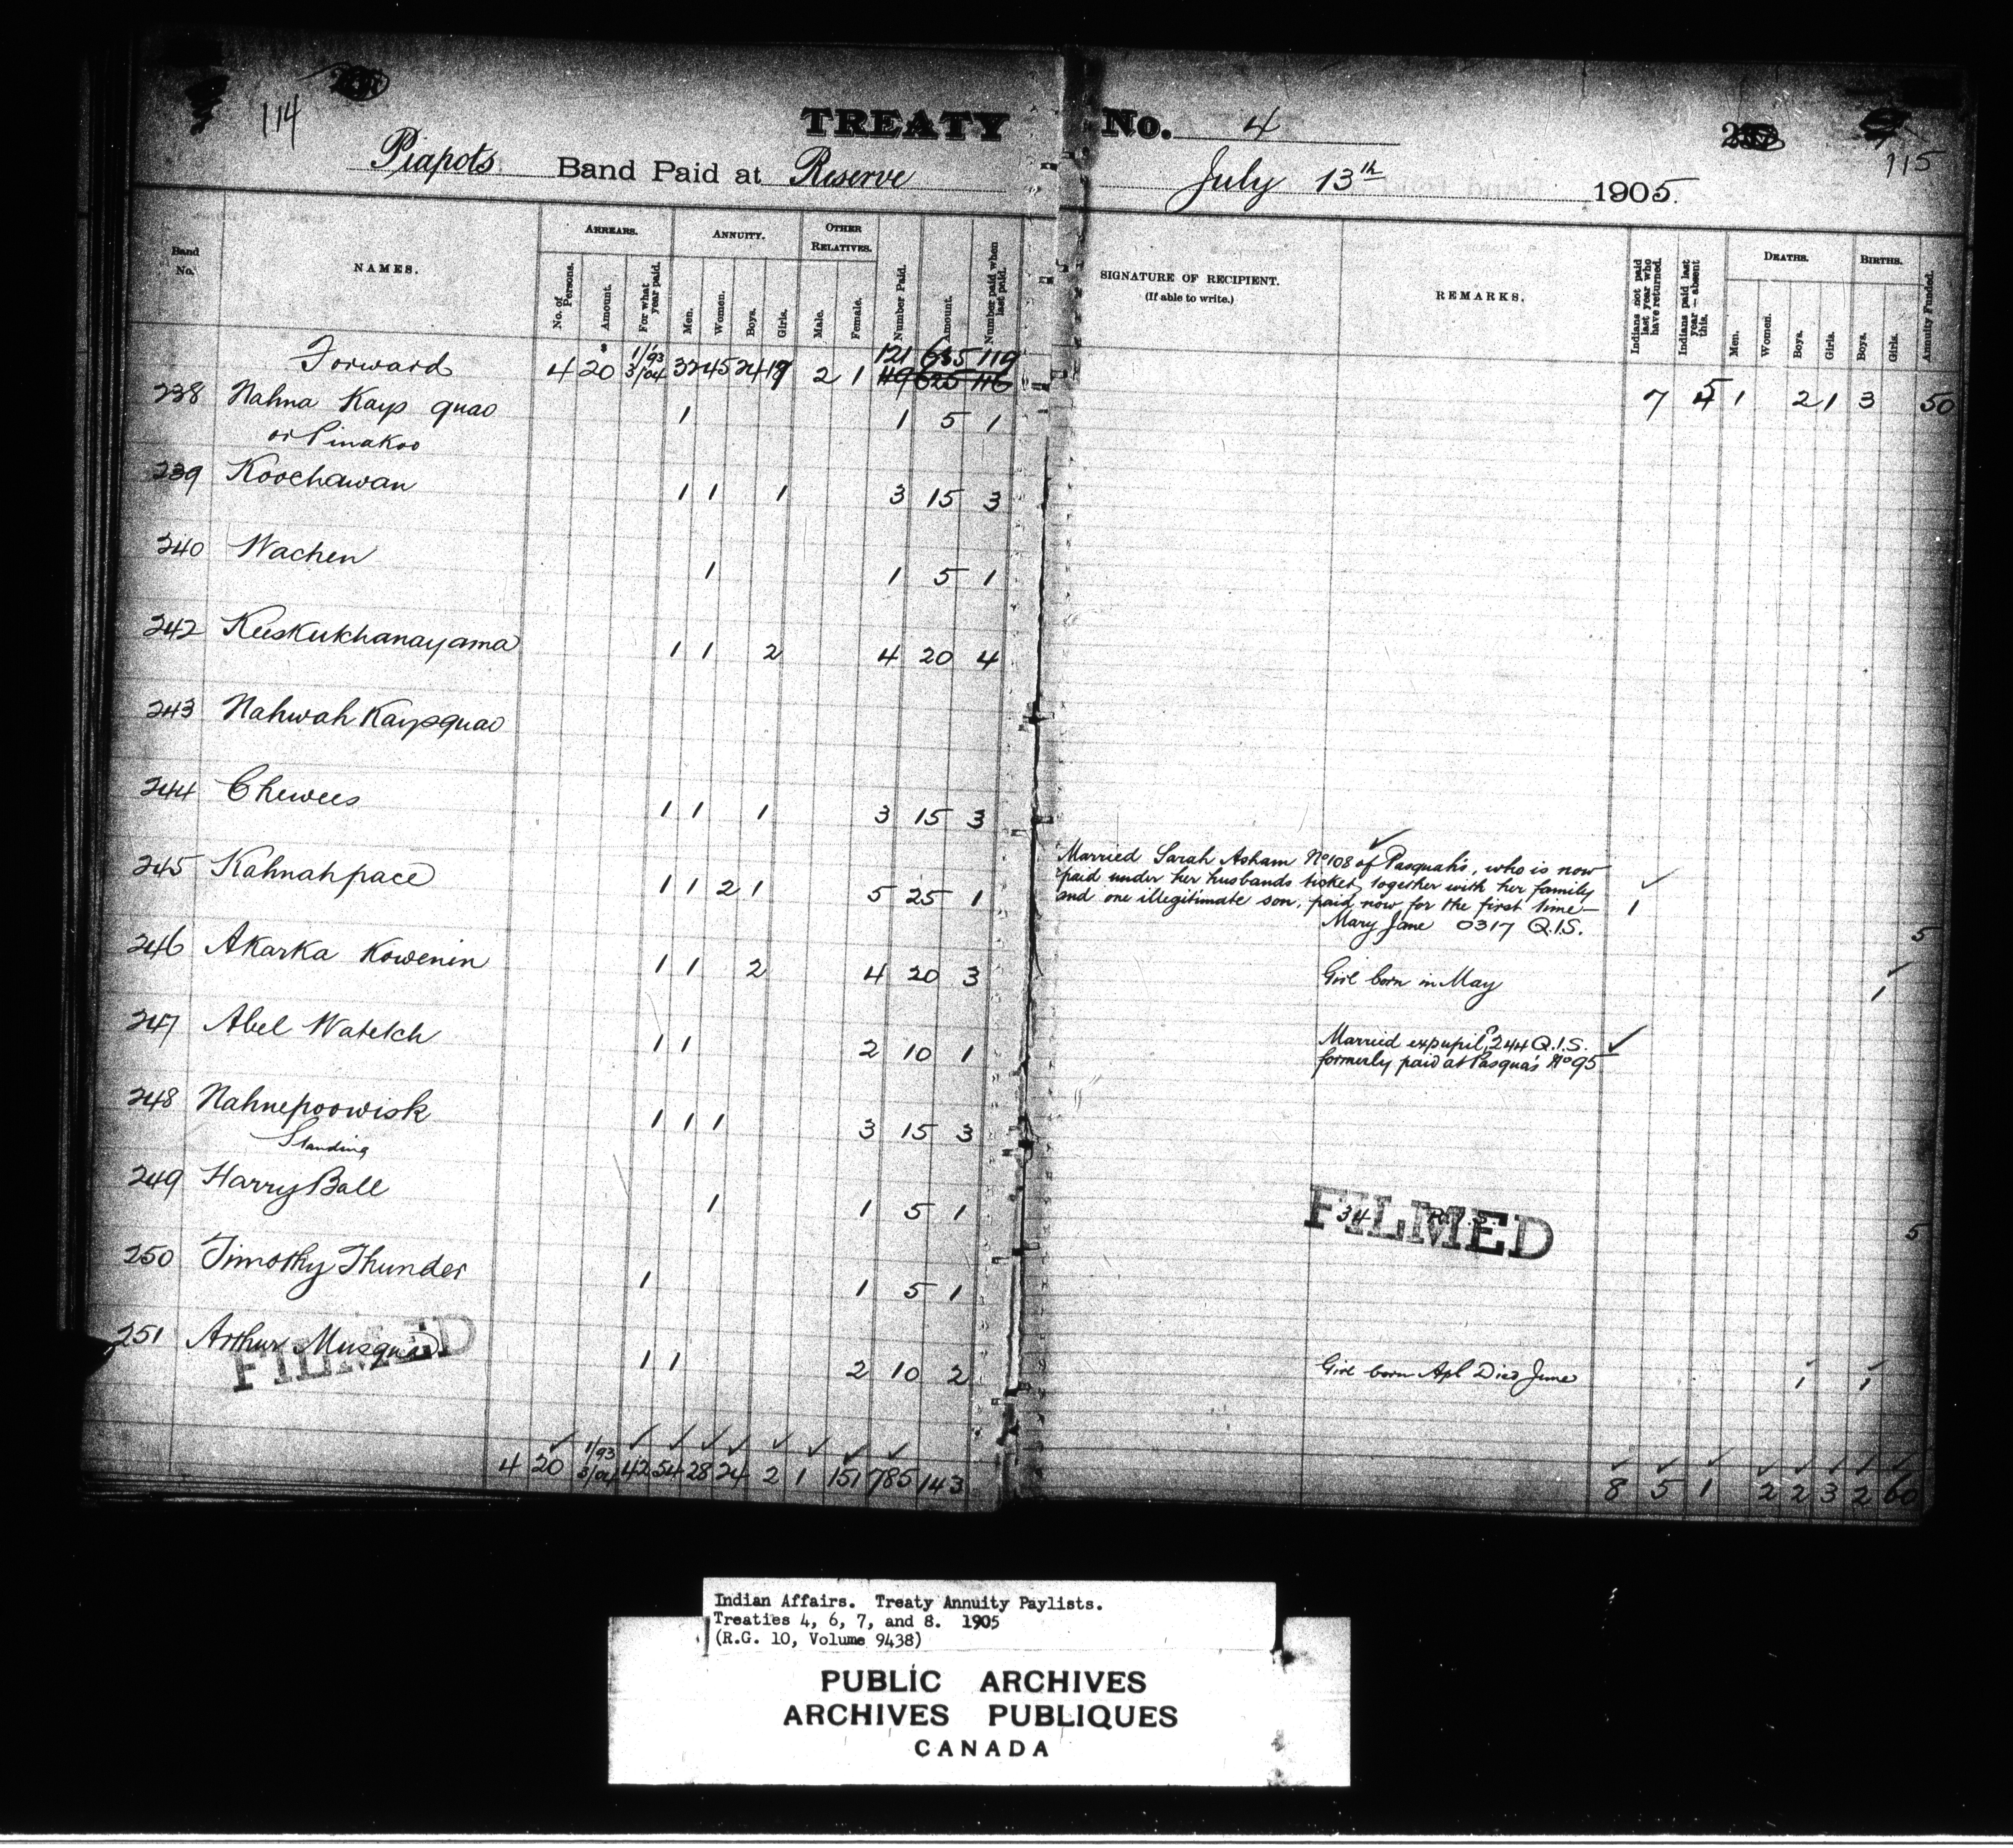 114
TREATY No. 4
115
Piapots Band Paid at Reserve July 13th 1905.
Band No.
NAMES.
ARREARS.
No. of Persons.
Amount.
For what year paid.
ANNUITY.
Men.
Women.
Boys.
Girls.
OTHER RELATIVES.
Male.
Female.
Number Paid.
Amount.
Number paid when last paid.
SIGNATURE OF RECIPIENT.
(If able to write.)
REMARKS.
Indians not paid last year who have returned.
Indians paid last year—absent this.
DEATHS.
Men.
Women.
Boys.
Girls.
BIRTHS.
Boys.
Girls.
Annuity Funded.
1/93 121 635 119
Forward 4 $20 3/04 32 45 24 19 2 1 119 625 116 7 5 1 2 1 3 50
238 Nahna Kays quao 1 1 5 1
or Pinakoo
239 Koochawan 1 1 1 3 15 3
240 Wachen 1 1 5 1
242 Keeskukhanayama 1 1 2 4 20 4
243 Nahwah Kaysquao
244 Chewees 1 1 1 3 15 3
245 Kahnahpace 1 1 2 1 5 25 1
Married Sarah Asham No 108 of Pasquah's, who is now
paid under her husbands ticket, together with her family
and one illegitimate son, paid now for the first time— 1
Mary Jane 0317 Q.I.S. 5
246 Akarka Kowenin 1 1 2 4 20 3 Girl born in May 1
247 Abel Watetch 1 1 2 10 1 Married expupil, 244 Q.I.S.
formerly paid at Pasqua's No 95
248 Nahnepoowisk 1 1 1 3 15 3
Standing
249 Harry Ball 1 1 5 1 34 5
FILMED
250 Timothy Thunder 1 1 5 1
251 Arthur Musqua 1 1 2 10 2 Girl born Apl Died June 1 1
FILMED
1/93
4 20 3/04 42 54 28 24 2 1 151 785 143 8 5 1 2 2 3 2 60
Indian Affairs. Treaty Annuity Paylists.
Treaties 4, 6, 7, and 8. 1905
(R.G. 10, Volume 9438)
PUBLIC ARCHIVES
ARCHIVES PUBLIQUES
CANADA